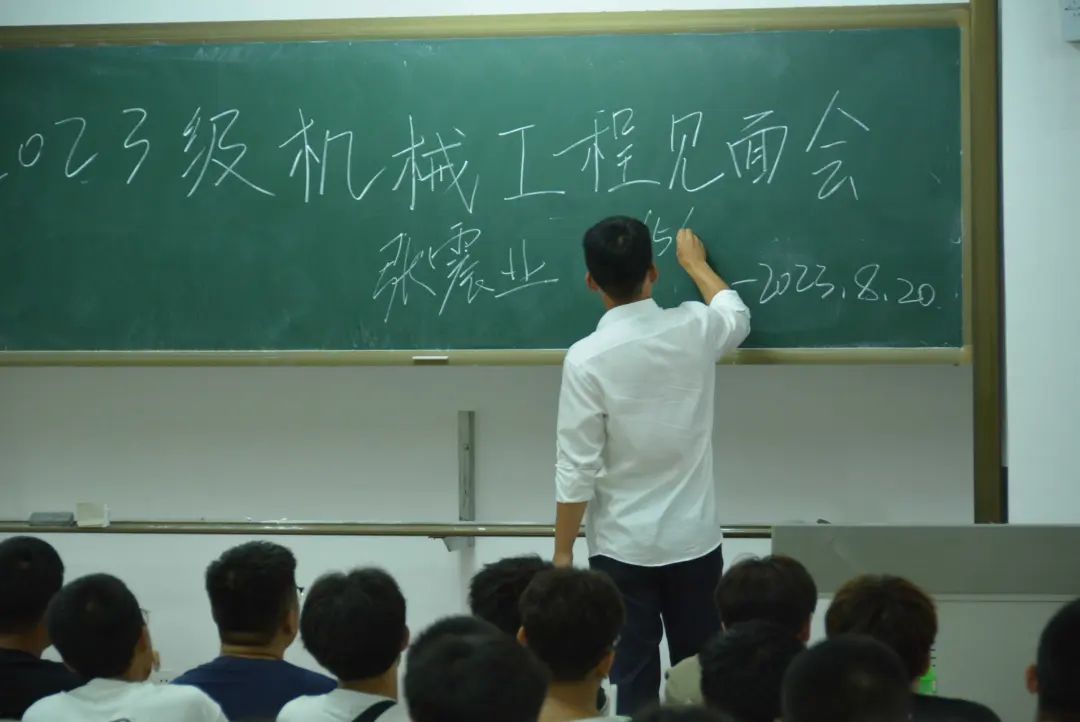 2023级机械工程见面会
张震业
-2023.8.20